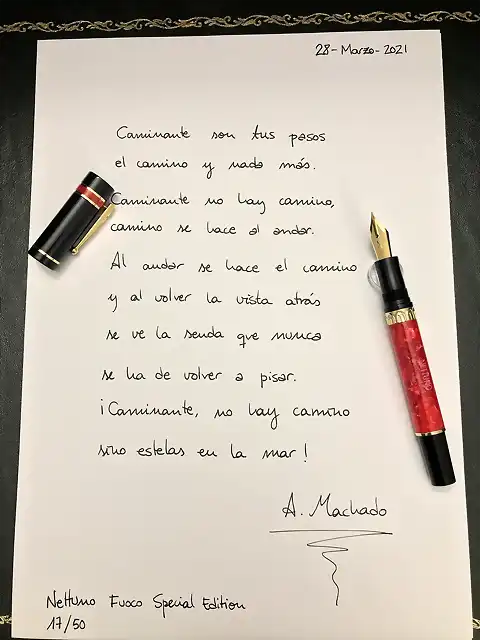 28-Marzo-2021
Caminante son tus pasos
el camino y nada más.
Caminante no hay camino,
camino se hace al andar.
Al andar se hace el camino
y al volver la vista atrás
se ve la senda que nunca
se ha de volver a pisar.
¡Caminante, no hay camino
sino estelas en la mar!
A. Machado
Nettuno Fuoco Special Edition
17/50